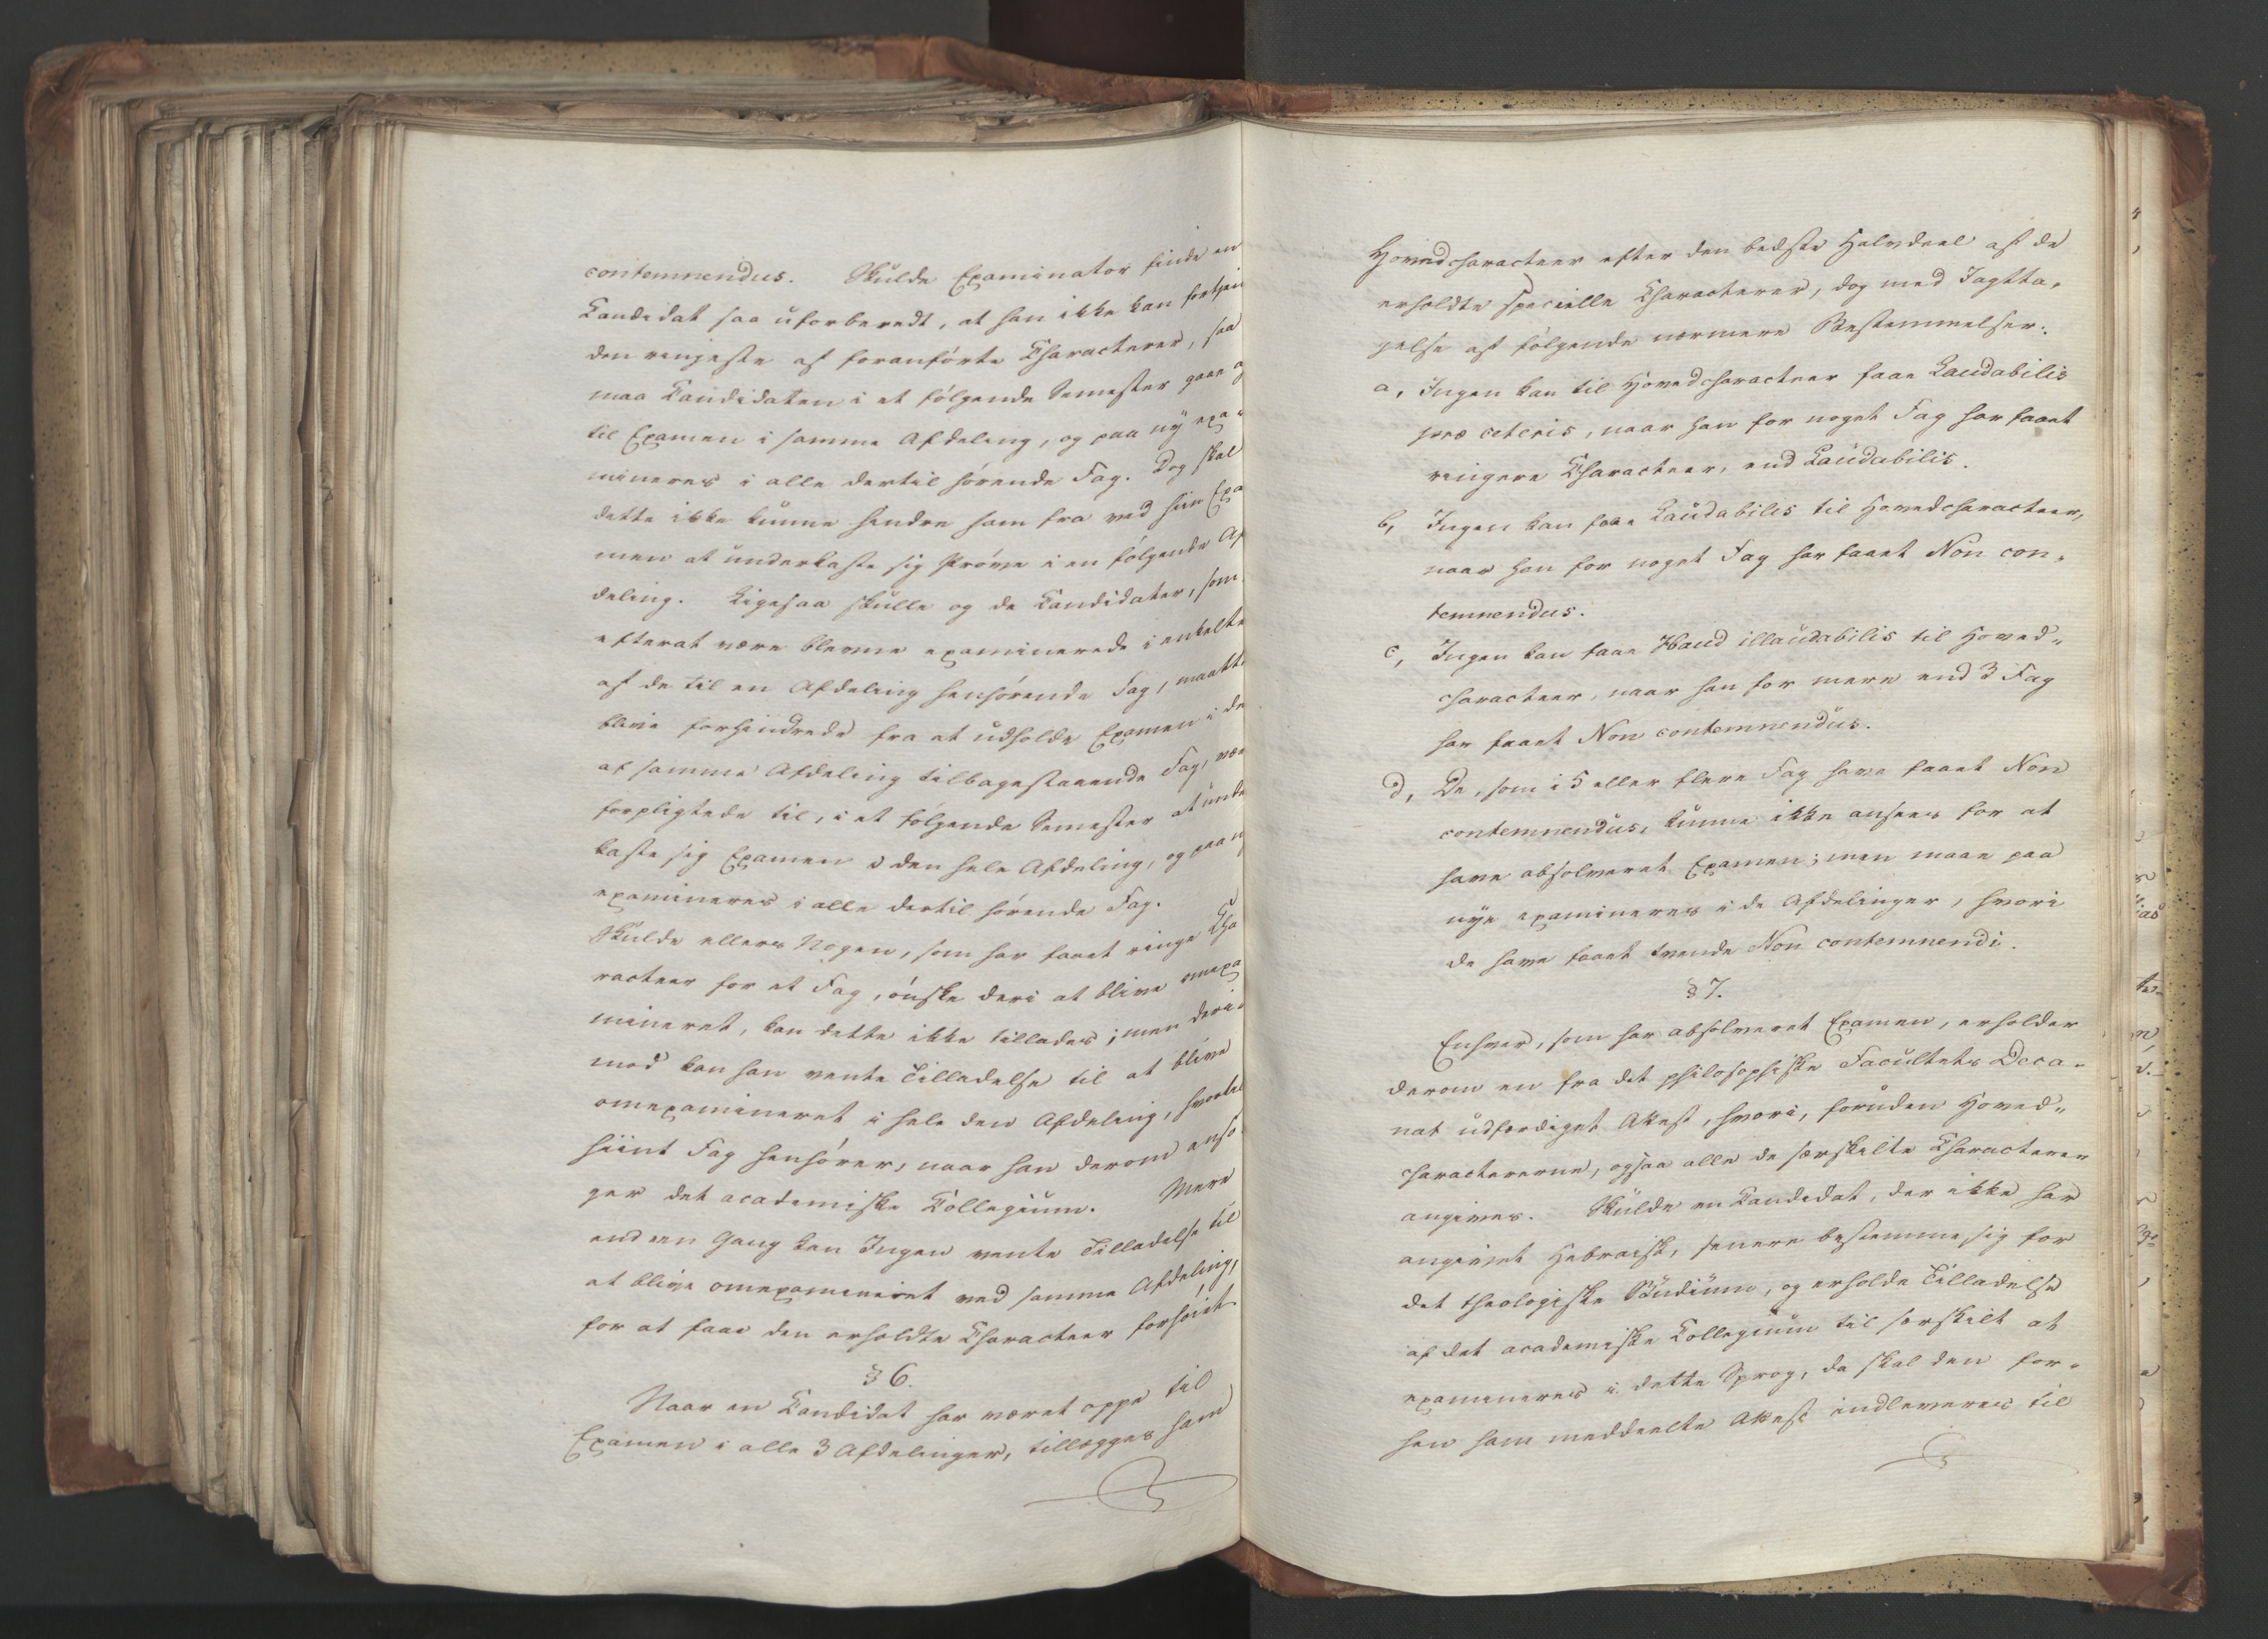 contemnendus. Skulde Examinator finde en
Candidat saa uforberedt, at han ikke kan fortjen
den ringeste af foranførte Characterer, saa
maa Candidaten i et følgende Semester gaae op
til Examen i samme Afdeling, og paa ny exa-
mineres i alle dertil hørende Fag. Dog skal
dette ikke kunne hindre ham fra ved hiin Exa
men at underkaste sig Prøve i en følgende Af
deling. Ligesaa skulle og de Candidater, som
efterat være blevne examinerede i enkelte
af de til en Afdeling henhørende Fag, maatte
blive forhindrede fra at udholde Examen i de
af samme Afdeling tilbagestaaende Fag, være
forpligtede til, i et følgende Semester at unde
kaste sig Examen i den hele Afdeling, og paa ny
examineres i alle dertil hørende Fag.
Skulde ellers Nogen, som har faaet ringe Cha
racteer for et Fag, ønske deri at blive omexa
mineret, kan dette ikke tillades; men deri-
mod kan han vente Tilladelse til at blive
omexamineret i hele den Afdeling, hvortil
hiint Fag henhører, naar han derom ansø
ger det academiske Collegium. Mere
end een Gang kan Ingen vente Tilladelse til
at blive omexamineret ved samme Afdeling,
for at faae den erholdte Characteer forhøiet
§ 6.
Naar en Candidat har været oppe til
Examen i alle 3 Afdelinger, tillægges ham
Hovedcharacteer efter den bedste Halvdeel af de
erholdte specielle Characterer, dog med Iagtta-
gelse af følgende nærmere Bestemmelser:
a, Ingen kan til Hovedcharacteer faae Laudabilis
præ ceteris, naar han for noget Fag har faaet
ringere Characteer, end Laudabilis.
b, Ingen kan faae Laudabilis til Hovedcharacteer,
naar han for noget Fag har faaet Non con-
temnendus.
c, Ingen kan faae Haud illaudabilis til Hoved-
characteer, naar han for mere end 3 Fag
har faaet Non contemnendus.
d, De, som i 5 eller flere Fag have faaet Non
contemnendus, kunne ikke ansees for at
have absolveret Examen; men maae paa
nye examineres i de Afdelinger, hvori
de have faaet tvende Non contemnendi.
§ 7.
Enhver, som har absolveret Examen, erholder
derom en fra det philosophiske Facultets Deca-
nat udfærdiget Attest, hvori, foruden Hoved-
characterene, ogsaa alle de særskilte Characterer
angives. Skulde en Candidat, der ikke har
angivet Hebraisk, senere bestemme sig for
det theologiske Studium, og erholde Tilladelse
af det academiske Collegium til særskilt at
examineres i dette Sprog, da skal den for-
hen ham meddeelte Attest indleveres til